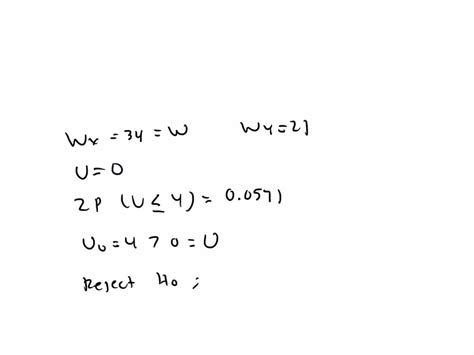 Wx = 34 = W Wy = 21
U = 0
2P (U ≤ 4) = 0.0571
U₀ = 4 > 0 = U
Reject H₀ ;